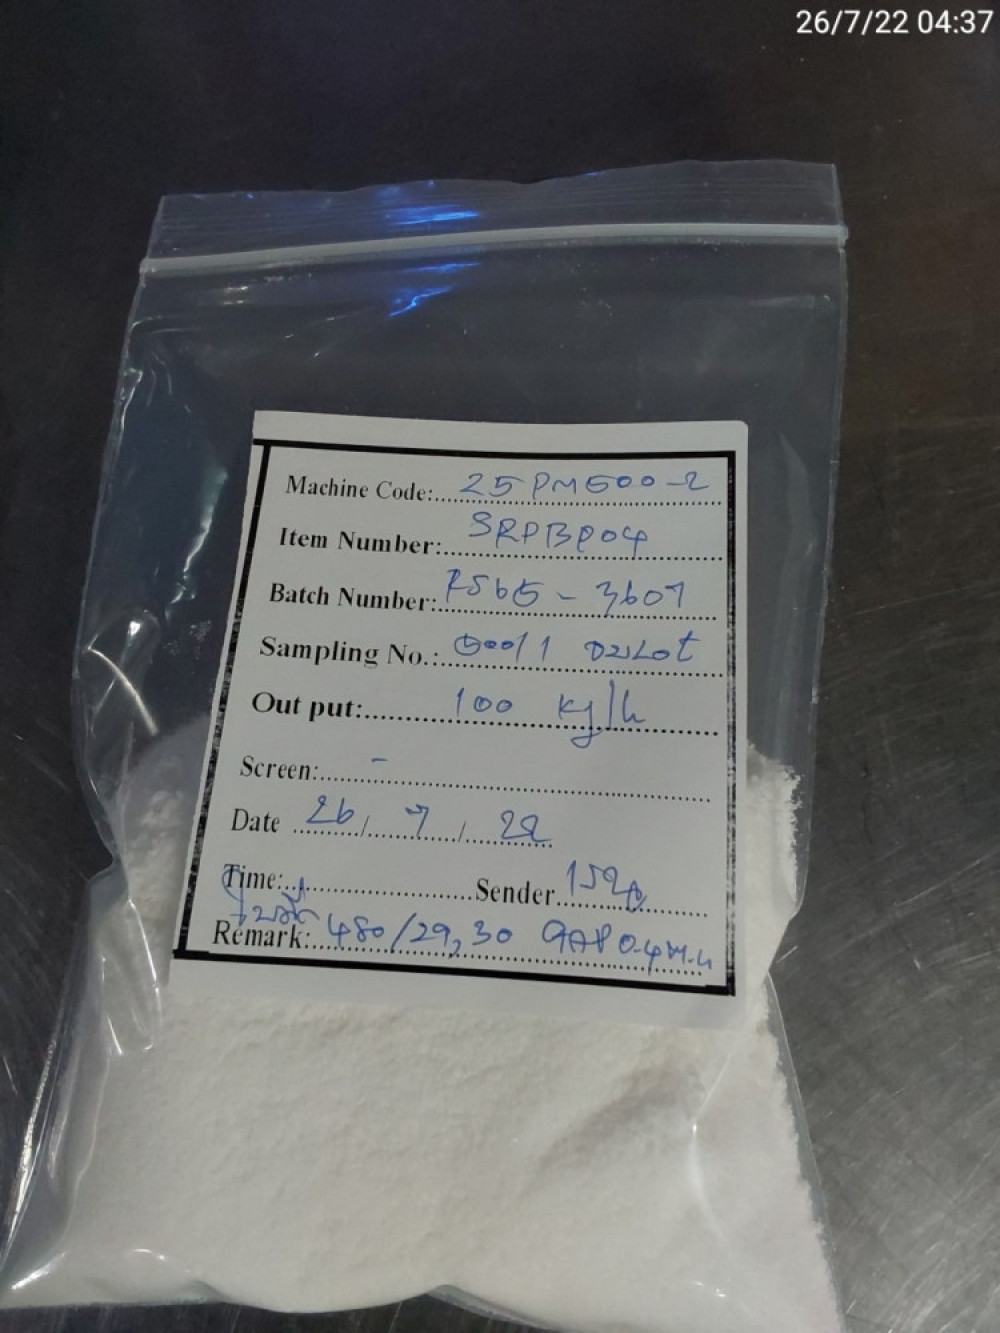 26/7/22 04:37
Machine Code: 25PM500-2
Item Number: SRPBP04
Batch Number: RS65-3607
Sampling No.: 1 จบLot
Out put: 100 kg/h
Screen: -
Date 26/7/22
Time: Sender
ใบมีด
Remark: 480/29,30 GAP 0.4 M.m